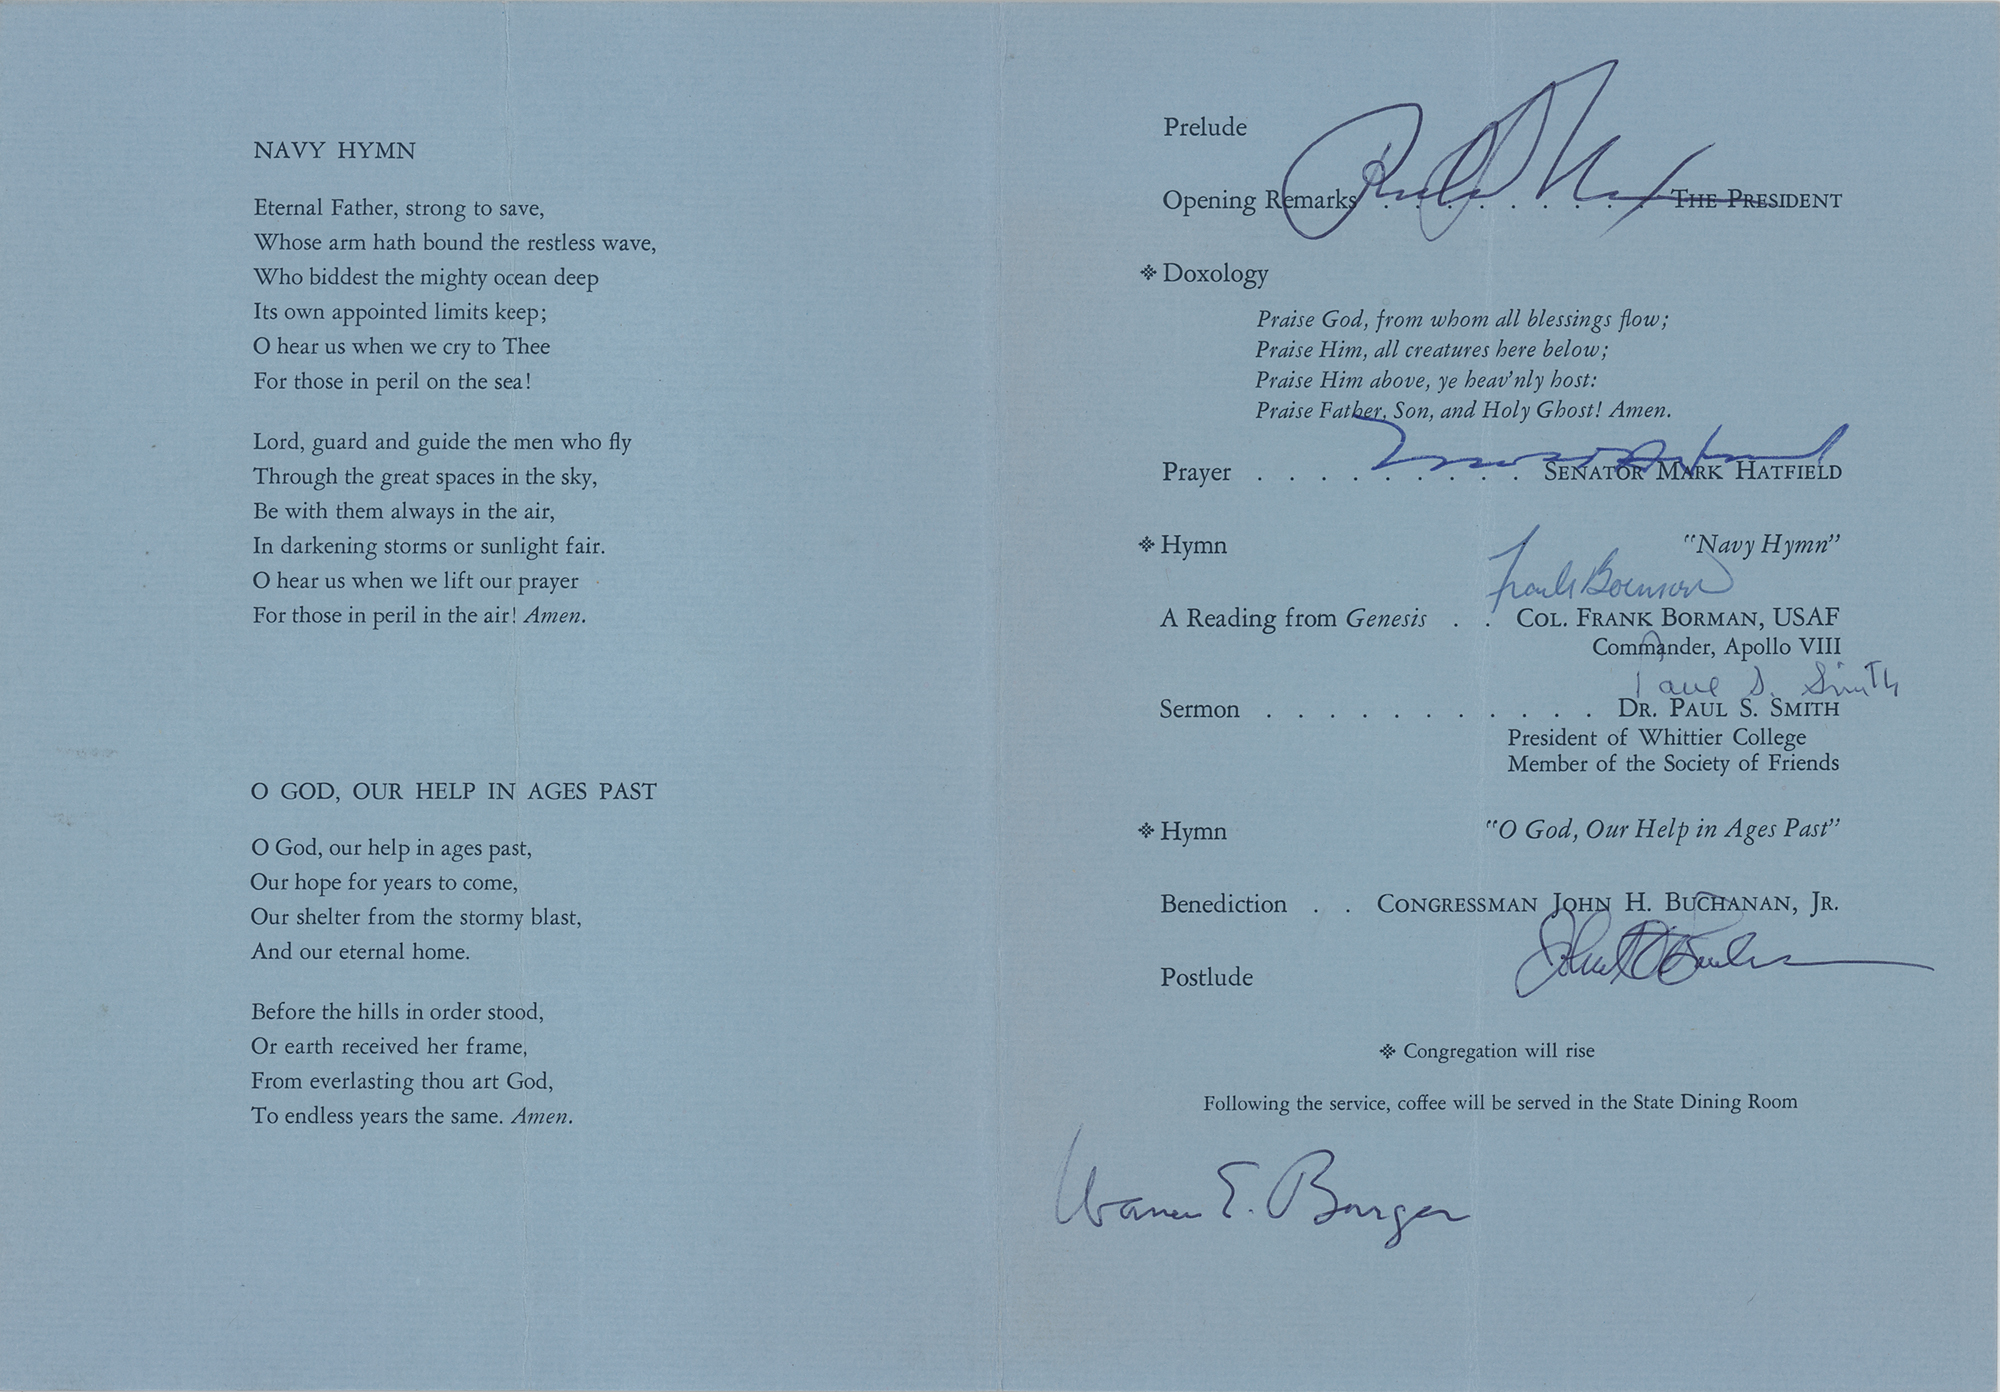 NAVY HYMN
Eternal Father, strong to save,
Whose arm hath bound the restless wave,
Who biddest the mighty ocean deep
Its own appointed limits keep;
O hear us when we cry to Thee
For those in peril on the sea!
Lord, guard and guide the men who fly
Through the great spaces in the sky,
Be with them always in the air,
In darkening storms or sunlight fair.
O hear us when we lift our prayer
For those in peril in the air! Amen.
O GOD, OUR HELP IN AGES PAST
O God, our help in ages past,
Our hope for years to come,
Our shelter from the stormy blast,
And our eternal home.
Before the hills in order stood,
Or earth received her frame,
From everlasting thou art God,
To endless years the same. Amen.
Prelude
Opening Remarks . . . . . . . . . THE PRESIDENT
❖ Doxology
Praise God, from whom all blessings flow;
Praise Him, all creatures here below;
Praise Him above, ye heav'nly host:
Praise Father, Son, and Holy Ghost! Amen.
Prayer . . . . . . . . . SENATOR MARK HATFIELD
❖ Hymn "Navy Hymn"
Frank Borman
A Reading from Genesis . . COL. FRANK BORMAN, USAF
Commander, Apollo VIII
Paul S. Smith
Sermon . . . . . . . . . . . DR. PAUL S. SMITH
President of Whittier College
Member of the Society of Friends
❖ Hymn "O God, Our Help in Ages Past"
Benediction . . CONGRESSMAN JOHN H. BUCHANAN, JR.
Postlude
❖ Congregation will rise
Following the service, coffee will be served in the State Dining Room
Warren E. Burger